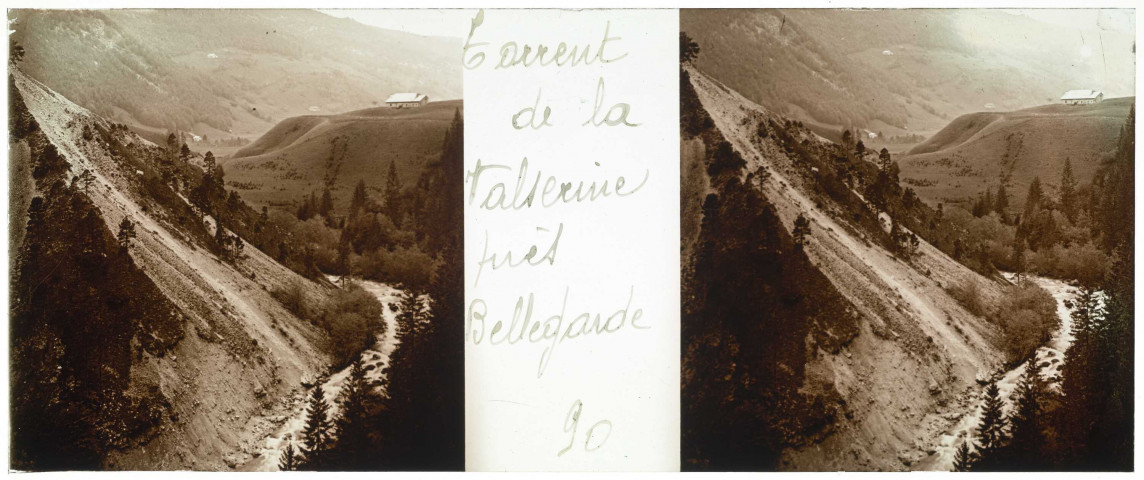 Torrent
de la
Valserine
près
Bellegarde
90